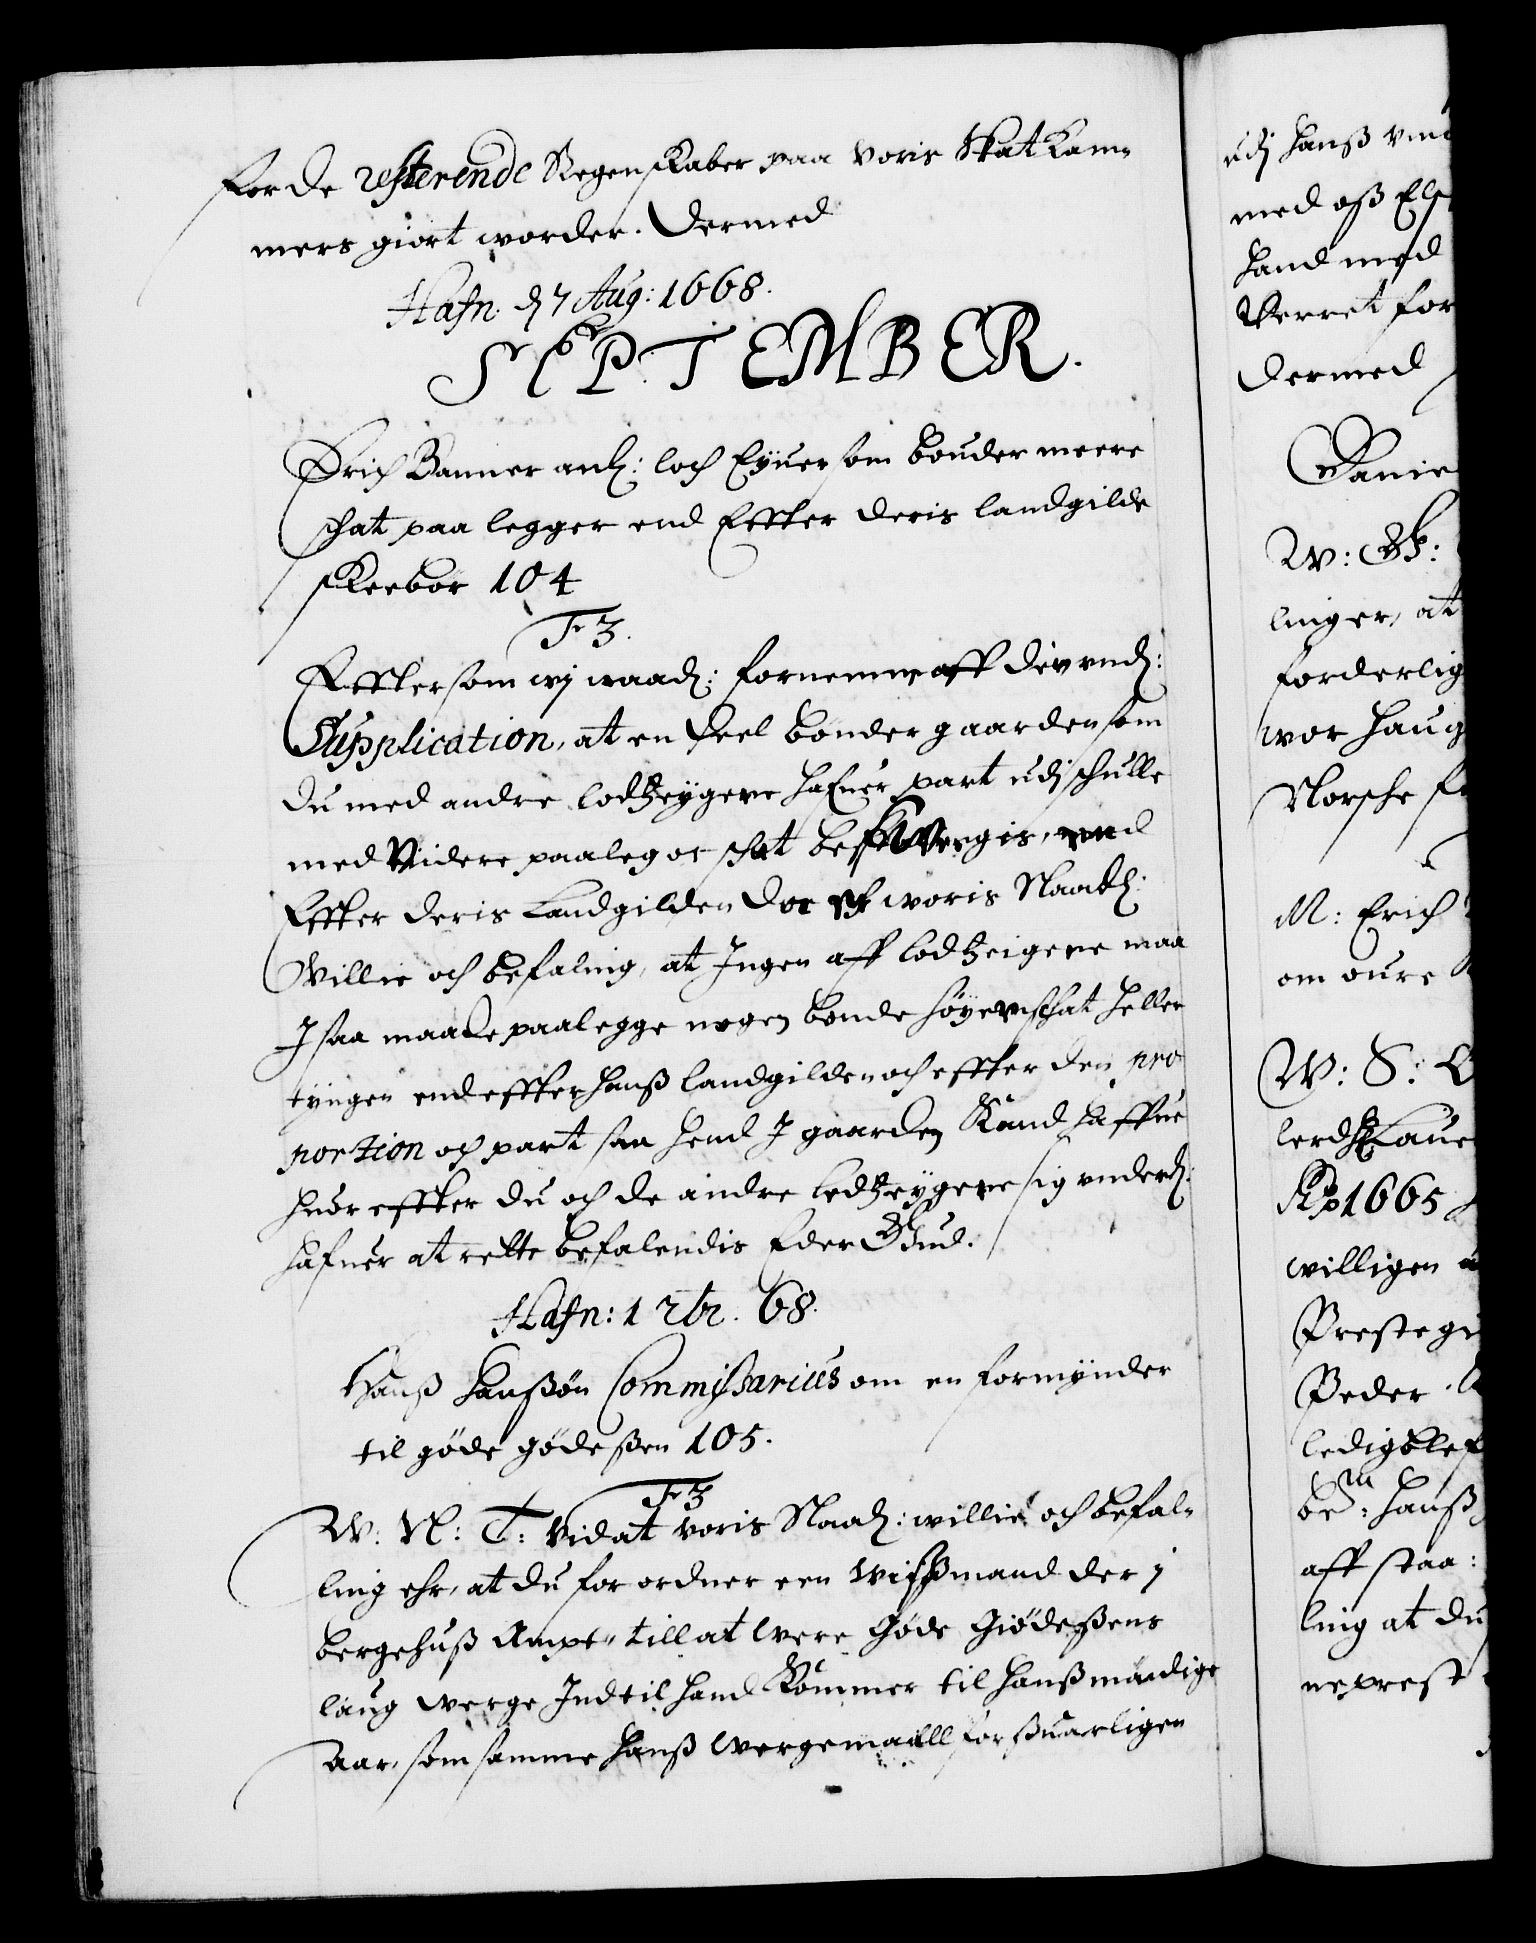 for de resterende Regenskaber paa voris Skat Kam¬
mers giort worder. Dermed
Hafn. d 7 Aug: 1668.
SEPTEMBER.
Erich Banner anl: loch Eyuer som bønder meere
schat paa legger end Effter deris landgilde
skeebør 104
F 3.
Effter som wj naad: fornemme aff din und:
Supplication, at en deel bønder gaarder som
du med andre lodtzeygere hafuer part udj schulle
med Videre paaleg oc schat besuergis, end
Effter deris Landgilde Da er woris Naad:
Willie och befaling, at Ingen aff lodtzeigerne maa
J saa maade paalegge nogen bonde høyere schat heller
tynger end effter hanß landgilde och effter den pro
portion och part saa hend J gaarden Kand haffue
huor effter du och de andre lodtzeygere sig underd:
hafuer at rette befalendis Eder Gud.
Hafn: 1 7br. 68.
Hanß Hanßøn Commissarius om en formynder
til gøde gødeßen 105.
F 3
W: N: T: Vid at voris Naad: willie och befal¬
ling ehr, at du forordner een wißmand der i
bergehuß Ampt, till at were Gøde Giødeßens
laug werge Indtil hand Kommer til hanß mundige
Aar, som samme hanß wergemaall forßuarligen
udj hanß
med oß
hand med
Verret for
Dermed
W:
linger, at
forderlig
wor
Norsche
M: Erich
om
W: S:
1665
willigen
Preste
Peder
ledig blef
be.m: hanß
aff staa:
ling at du